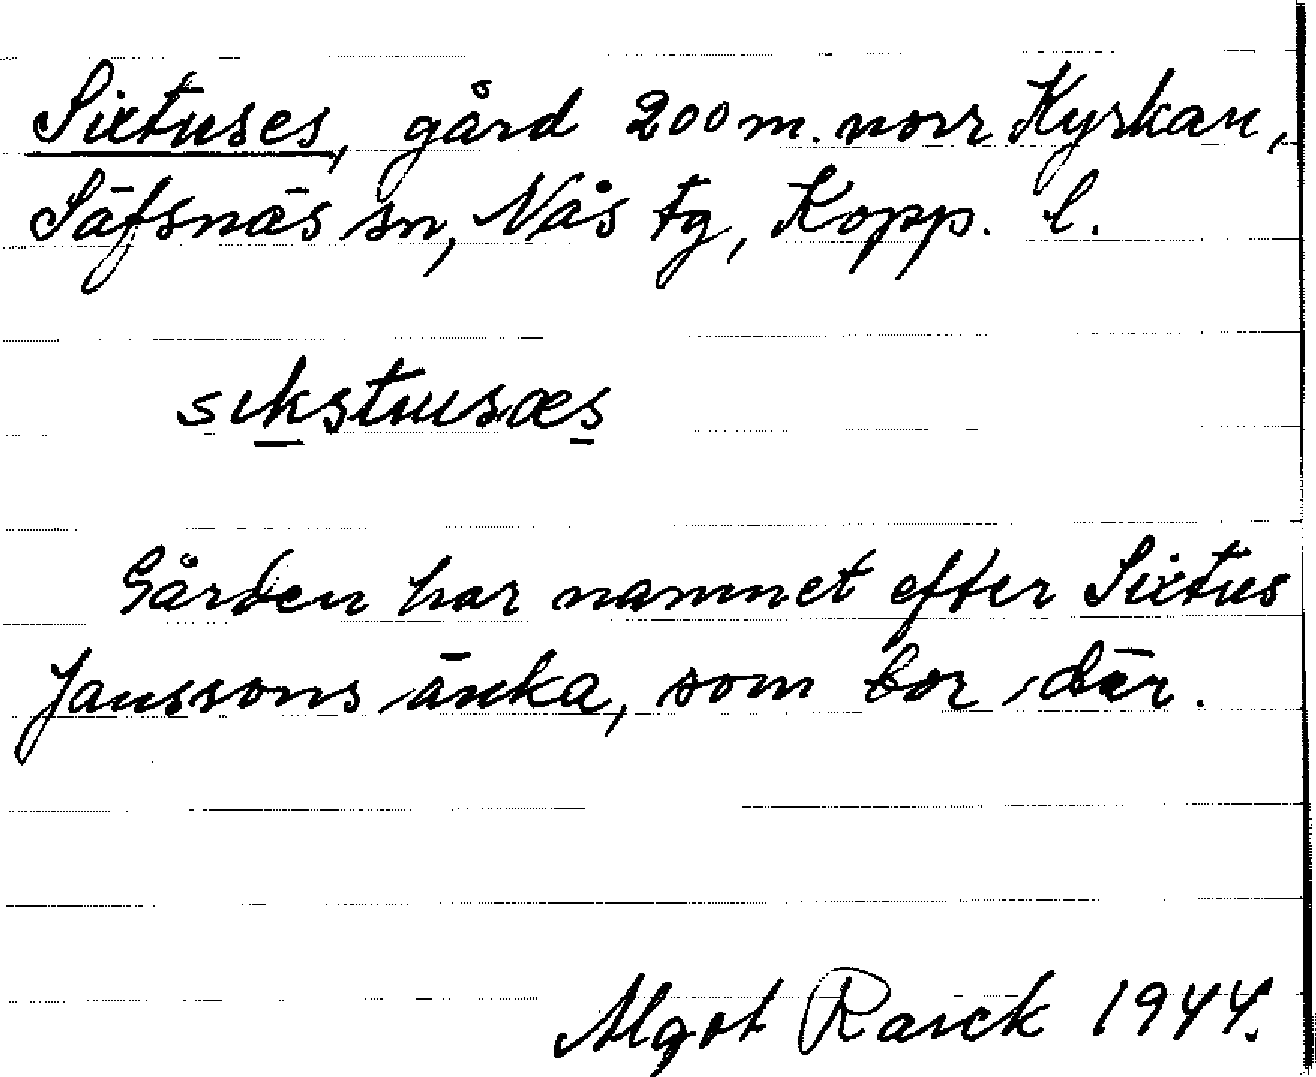 Sixtuses, gård 200 m. norr Kyrkan,
Säfsnäs sn, Nås tg, Kopp. l.
sıkstusæs
Gården har namnet efter Sixtus
Janssons änka, som bor där.
Algot Rarck 1944.